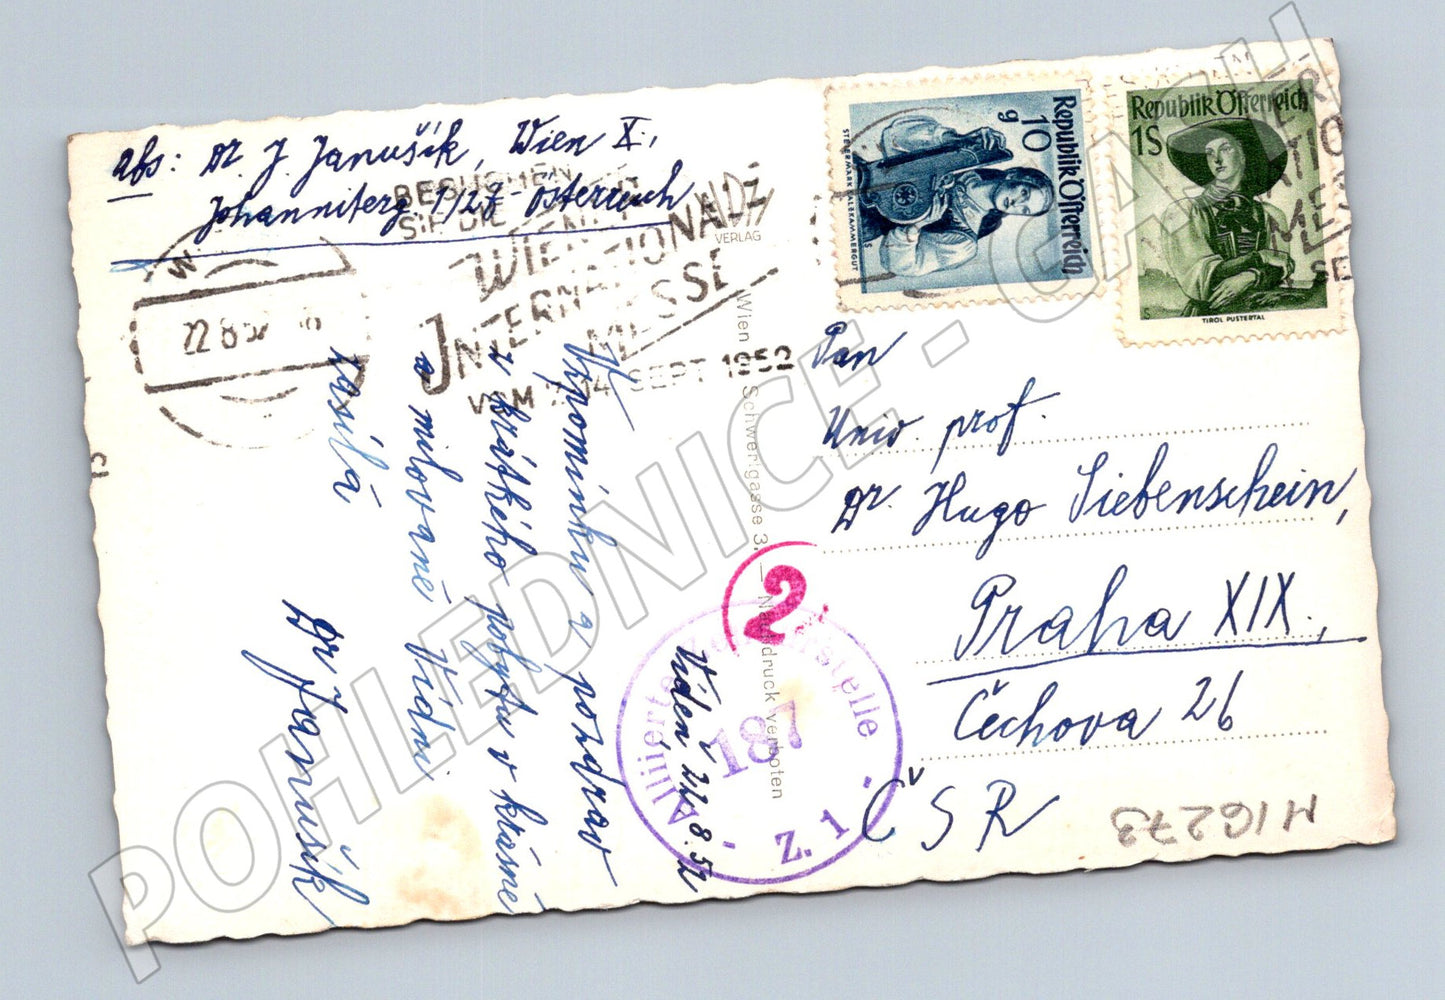 abs: Dr. J. Janušík, Wien X.,
Johanniterg 1/27 - Österreich
W
22.8.52
BESUCHEN
SIE DIE
WIENER
INTERNATIONALE
MESSE
VOM 7.-14. SEPT 1952
VERLAG
Wien Schwertgasse 3. — Nachdruck verboten
Republik Österreich
10 g
STEIERMARK SALZKAMMERGUT
Republik Österreich
1S
TIROL PUSTERTAL
Vzpomínku a pozdrav
z krátkého pobytu v krásné
a milované Vídni
zasílá
Dr Janušík
Vídeň 22/8.52
2
Alliierte Zensurstelle
187
- Z. 1 -
Pan
Univ. prof.
Dr. Hugo Siebenschein,
Praha XIX.,
Čechova 26
ČSR
M1G273
POHLEDNICE - GASH